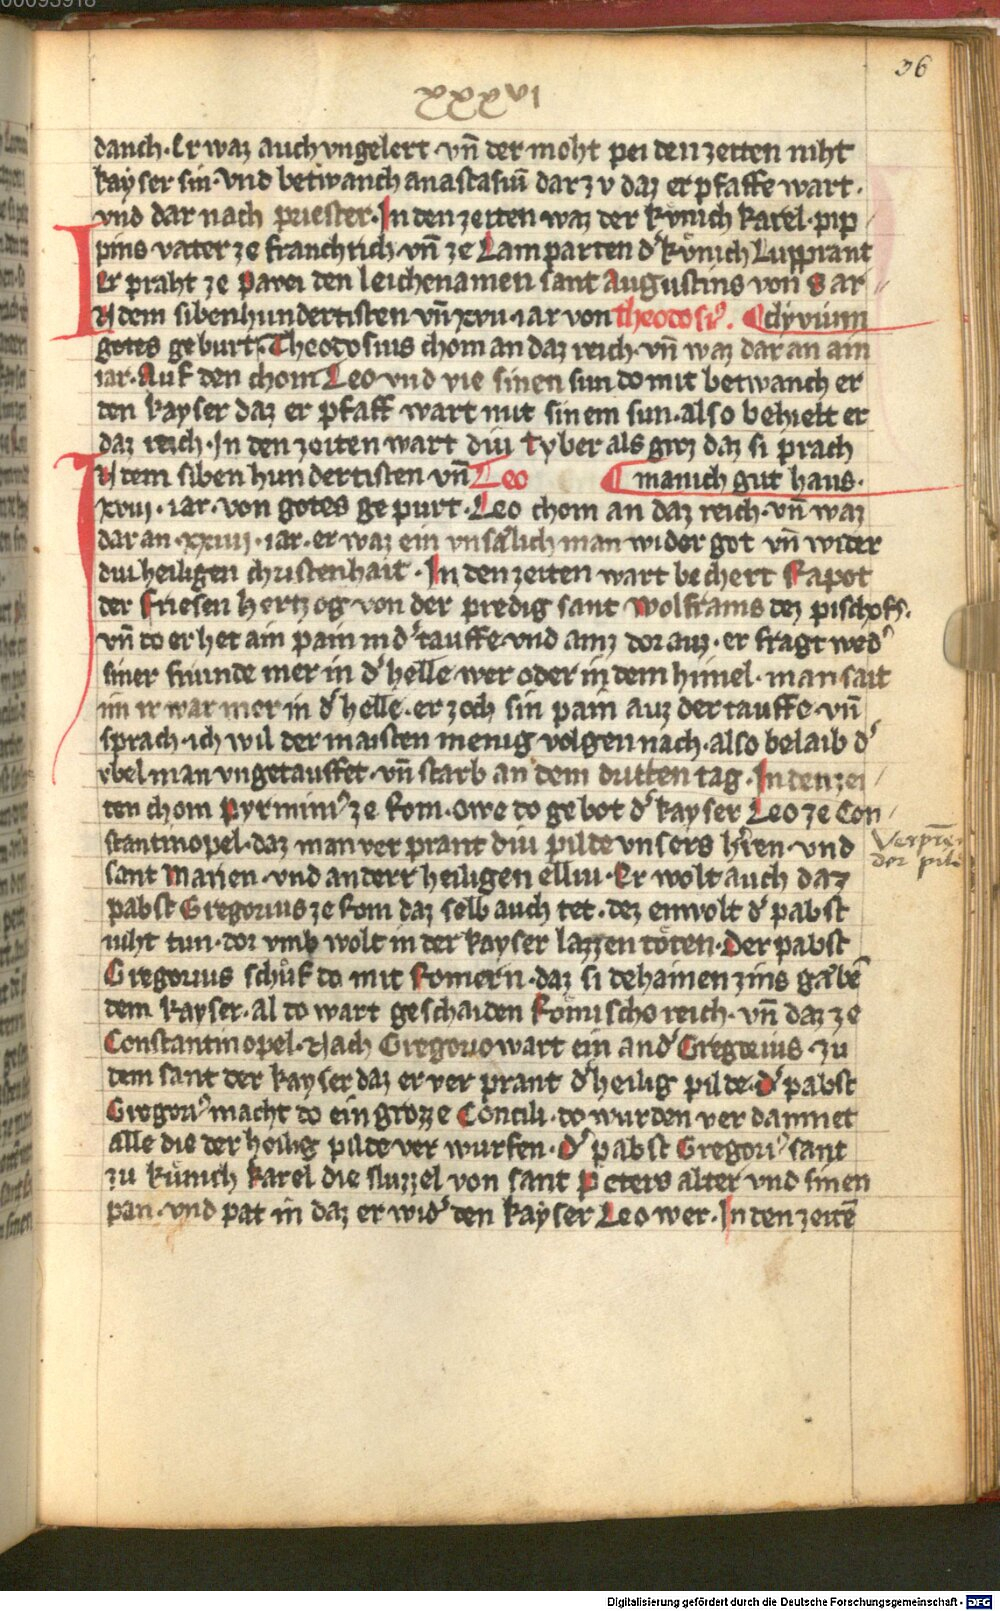 00093918
36
xxxvi
danch · Er waz auch vngelert · vn̄ der moht pei den zeiten niht
kayser sin · Vnd betwanch anastasiū dar zv daz er pfaffe wart ·
vnd dar nach priester · In den zeiten waz der kv̊nich karel · pip
pins vater ze franchrich · vn̄ ze Lamparten dˀ kv̊nich Lupprant
Er praht ze Pavei den leichenamen sant Augustins von Sar
IN dem sibenhundertisten vn̄ xvii · iar von Theodosiꝰ. ¶ dyvium
gotes geburt · Theodosius chom an daz reich · vn̄ waz dar an ain
iar · Auf den chom Leo vnd vie sinen sun do mit betwanch er
den kayser daz er pfaff wart mit sinem sun · also behielt er
daz reich · In den zeiten wart diu Tyber als groz daz si prach
IN dem siben hundertisten vn̄ Leo ¶ manich gut haus ·
xviii · iar · von gotes gepurt · Leo chom an daz reich · vn̄ waz
dar an · xxiiii · iar · er waz ein vnsålich man wider got vn̄ wider
diu heiligen christenhait · In den zeiten wart bechert Rapot
der Friesen hertzog von der predig sant Wolframs dez pischofs ·
vn̄ do er het ain pain in dˀ tauffe · vnd ainz dor auz · er fragt wedˀ
siner friunde mer in dˀ helle wer oder in dem himel · man sait
im ir war mer in dˀ helle · er zoch sin pain auz der tauffe · vn̄
sprach · ich wil der maisten menig volgen nach · also belaib dˀ
vbel man vngetauffet · vn̄ starb an dem dritten tag · In den zei
ten chom Pyrminiꝰ ze Rom · Owe do gebot dˀ kayser Leo ze Con
stantinopel · daz man verprant diu pilde vnsers hˀren · vnd
sant Marien · vnd anderr heiligen elliu · Er wolt auch daz
pabst Gregorius ze Rom daz selb auch tet · dez enwolt dˀ pabst
niht tun · dor vmb wolt in der kayser lazzen tôten · Der pabst
Gregorius schůf do mit Romern · daz si dehainen zins gåbē
dem kayser · al do wart geschaiden Römischs reich · vn̄ daz ze
Constantinopel · Nach Gregorio wart ein andˀ Gregorius · zu
dem sant der kayser daz er verprant dˀ heilig pilde · dˀ pabst
Gregoriꝰ macht do ein grozze Concili · do wurden verdamnet
alle die der heilig pilde verwurfen · Dˀ pabst Gregoriꝰ sant
zu kůnich karel die sluzzel von sant Peters alter vnd sinen
pan · vnd pat in daz er widˀ den kayser Leo wer · In den zeitē
Digitalisierung gefördert durch die Deutsche Forschungsgemeinschaft - DFG